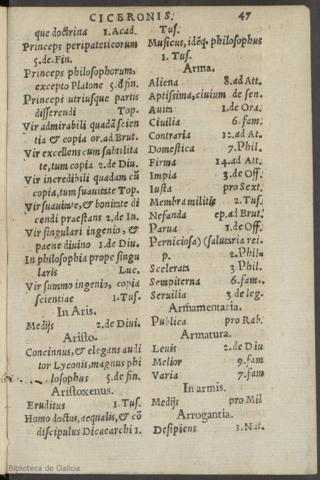 CICERONIS. 47
que doctrina 1. Acad.
Princeps peripateticorum
5. de. Fin.
Princeps philosophorum,
excepto Platone 5. d fin.
Princeps utriusque partis
disserendi Top.
Vir admirabili quadã scien
tia & copia or. ad Brut.
Vir excellens cum subtilita
te, tum copia 2. de Diu.
Vir incredibili quadam cũ
copia, tum suauitate Top.
Vir suauitate, & bonitate di
cendi praestans 2. de In.
Vir singulari ingenio, &
paene diuino 1. de Diu.
In philosophia prope singu
laris Luc.
Vir summo ingenio, copia
scientiae 1. Tus.
In Aris.
Medijs 2. de Diui.
Aristo.
Concinnus, & elegans audi
tor Lyconis, magnus phi
losophus 5. de fin.
Aristoxenus.
Eruditus 1. Tus.
Homo doctus, aequalis, & cõ
discipulus Dicaearchi 1.
Tus.
Musicus, idẽq. philosophus
1. Tus.
Arma.
Aliena 8. ad Att.
Aptissima, ciuium de sen.
Auits 1. de Ora.
Ciuilia 6. fam.
Contraria 12. ad At.
Domestica 7. Phil.
Firma 14. ad Att.
Impia 3. de Off.
Iusta pro Sext.
Membra militis 2. Tus.
Nefanda ep. ad Brut.
Parua 1. de Off.
Perniciosa) (salutaria rei.
p. 2. Phil.
Scelerata 3. Phil.
Sempiterna 6. fam.
Seruilia 3. de leg.
Armamentaria.
Publica pro Rab.
Armatura.
Leuis 2. de Diu
Melior 9. fam
Varia 7. fam
In armis.
Medijs pro Mil
Arrogantia.
Desipiens 1. Nat.
Biblioteca de Galicia